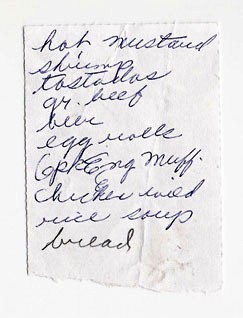 hot mustard
shrimp
tostadas
gr. beef
beer
egg rolls
6pk Eng Muff.
chicken wild
rice soup
bread